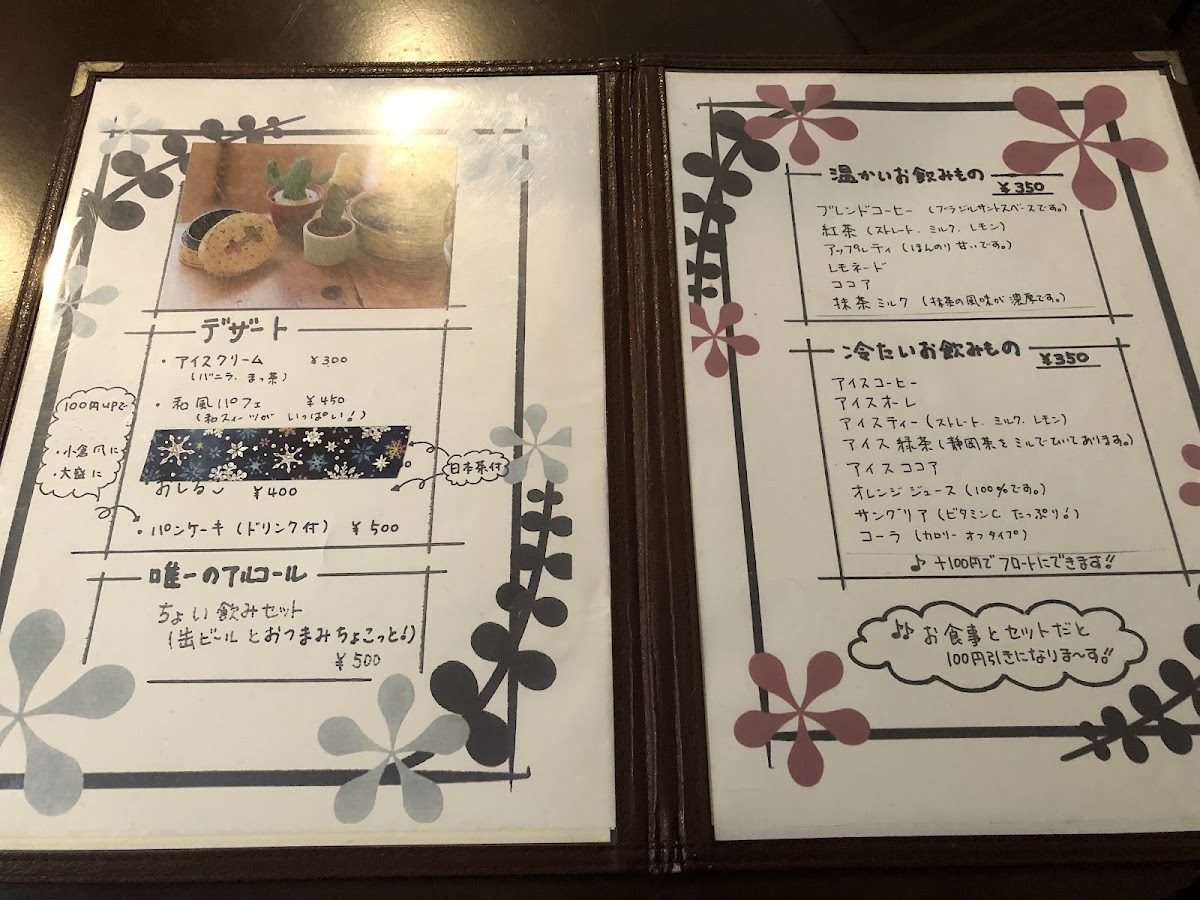 デザート
・アイスクリーム ¥300
(バニラ、まっ茶)
・和風パフェ ¥450
(和スイーツが いっぱい!)
100円UPで
・小倉風に
・大盛に
日本茶付
おしるこ ¥400
・パンケーキ(ドリンク付) ¥500
唯一のアルコール
ちょい飲みセット
(缶ビールとおつまみちょこっと!)
¥500
温かいお飲みもの ¥350
ブレンドコーヒー (ブラジルサントスベースです。)
紅茶(ストレート、ミルク、レモン)
アップルティ(ほんのり甘いです。)
レモネード
ココア
抹茶ミルク (抹茶の風味が濃厚です。)
冷たいお飲みもの ¥350
アイスコーヒー
アイスオーレ
アイスティー(ストレート、ミルク、レモン)
アイス緑茶(静岡茶をミルでひいております。)
アイスココア
オレンジジュース(100%です。)
サングリア(ビタミンC たっぷり!)
コーラ (カロリーオフタイプ)
♪ +100円でフロートにできます!!
♪♪ お食事とセットだと
100円引きになりま~す!!